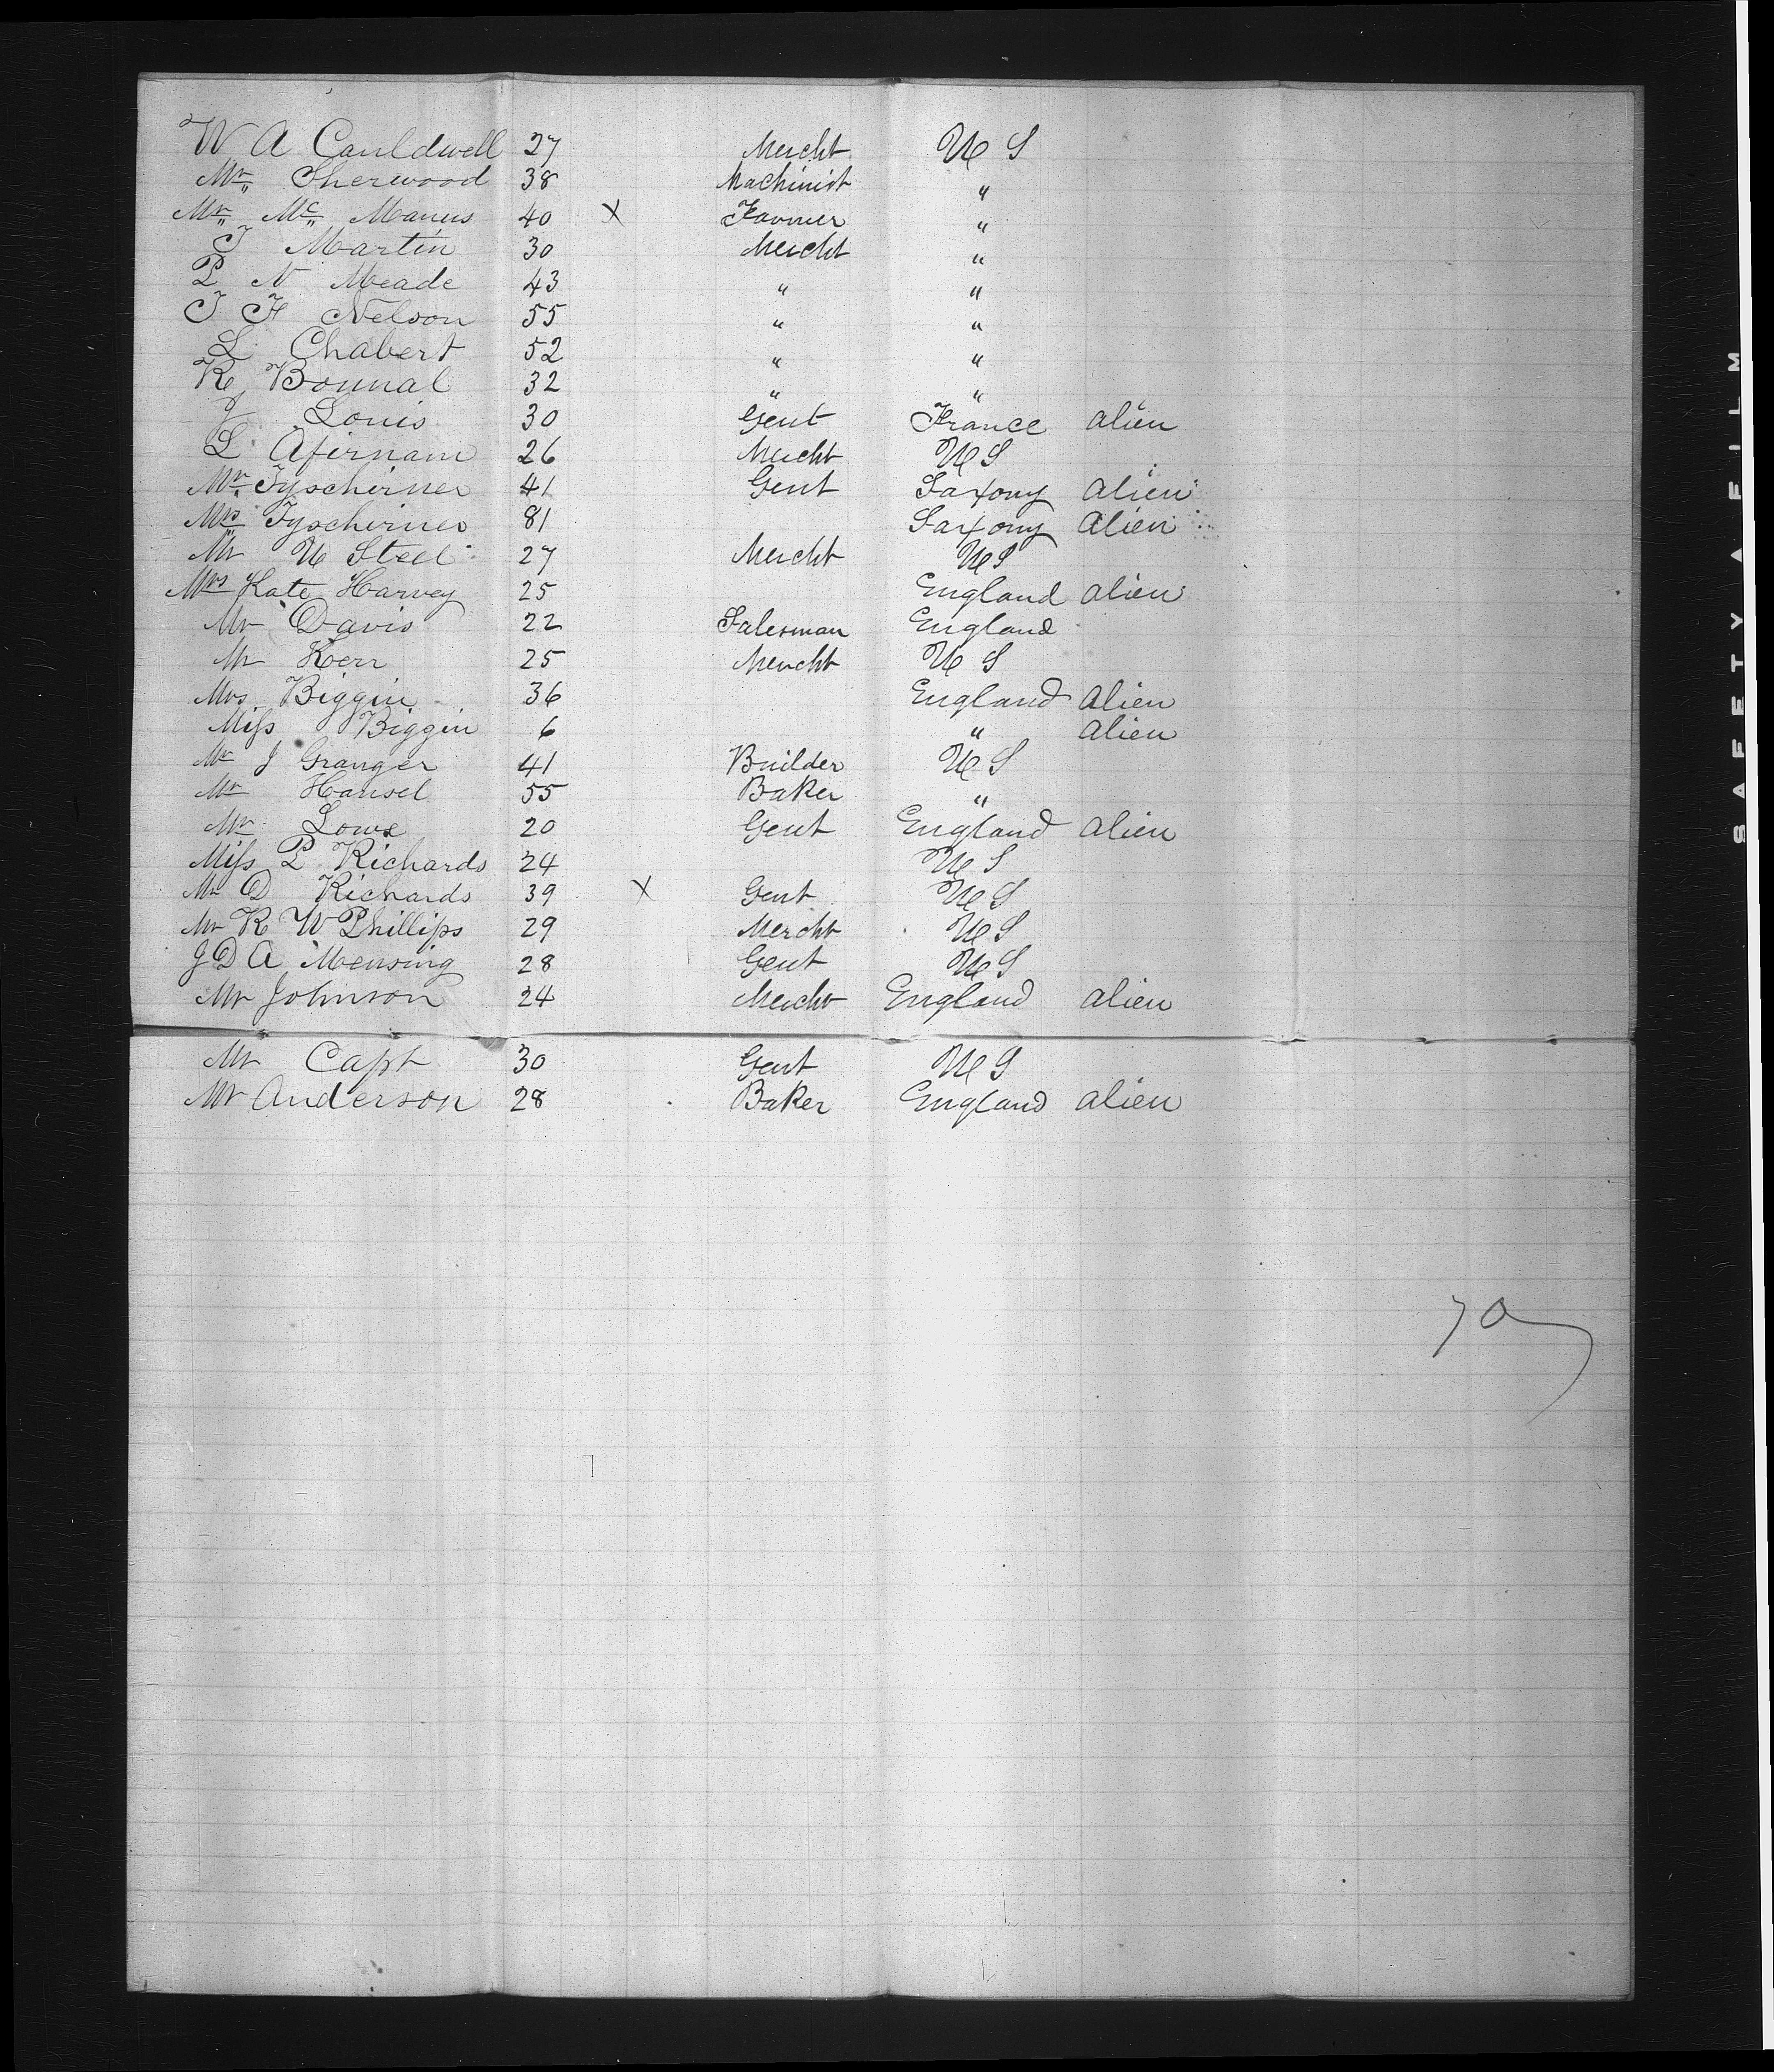 W A Cauldwell 27 Mercht U S
Mr Sherwood 38 Machinist "
Mr Mc Manus 40 X Farmer "
J Martin 30 Mercht "
P N Meade 43 " "
J F Nelson 55 " "
L Chabert 52 " "
R Bonnal 32 " "
J Louis 30 Gent France Alien
L Afirnam 26 Mercht U S
Mr Tyschirner 41 Gent Saxony Alien
Mrs Tyschirner 81 Saxony Alien
Mr U Steel 27 Mercht U S
Mrs Kate Harvey 25 England Alien
Mr Davis 22 Salesman England
Mr Kerr 25 Mercht U S
Mrs Biggin 36 England Alien
Miss Biggin 6 " Alien
Mr J Granger 41 Builder U S
Mr Hansel 55 Baker "
Mr Lowe 20 Gent England Alien
Miss P Richards 24 U S
Mr D Richards 39 X Gent U S
Mr R W Phillips 29 Mercht U S
J D A Mensing 28 Gent U S
Mr Johnson 24 Mercht England Alien
Mr Capt 30 Gent U S
Mr Anderson 28 Baker England Alien
SAFETY FILM